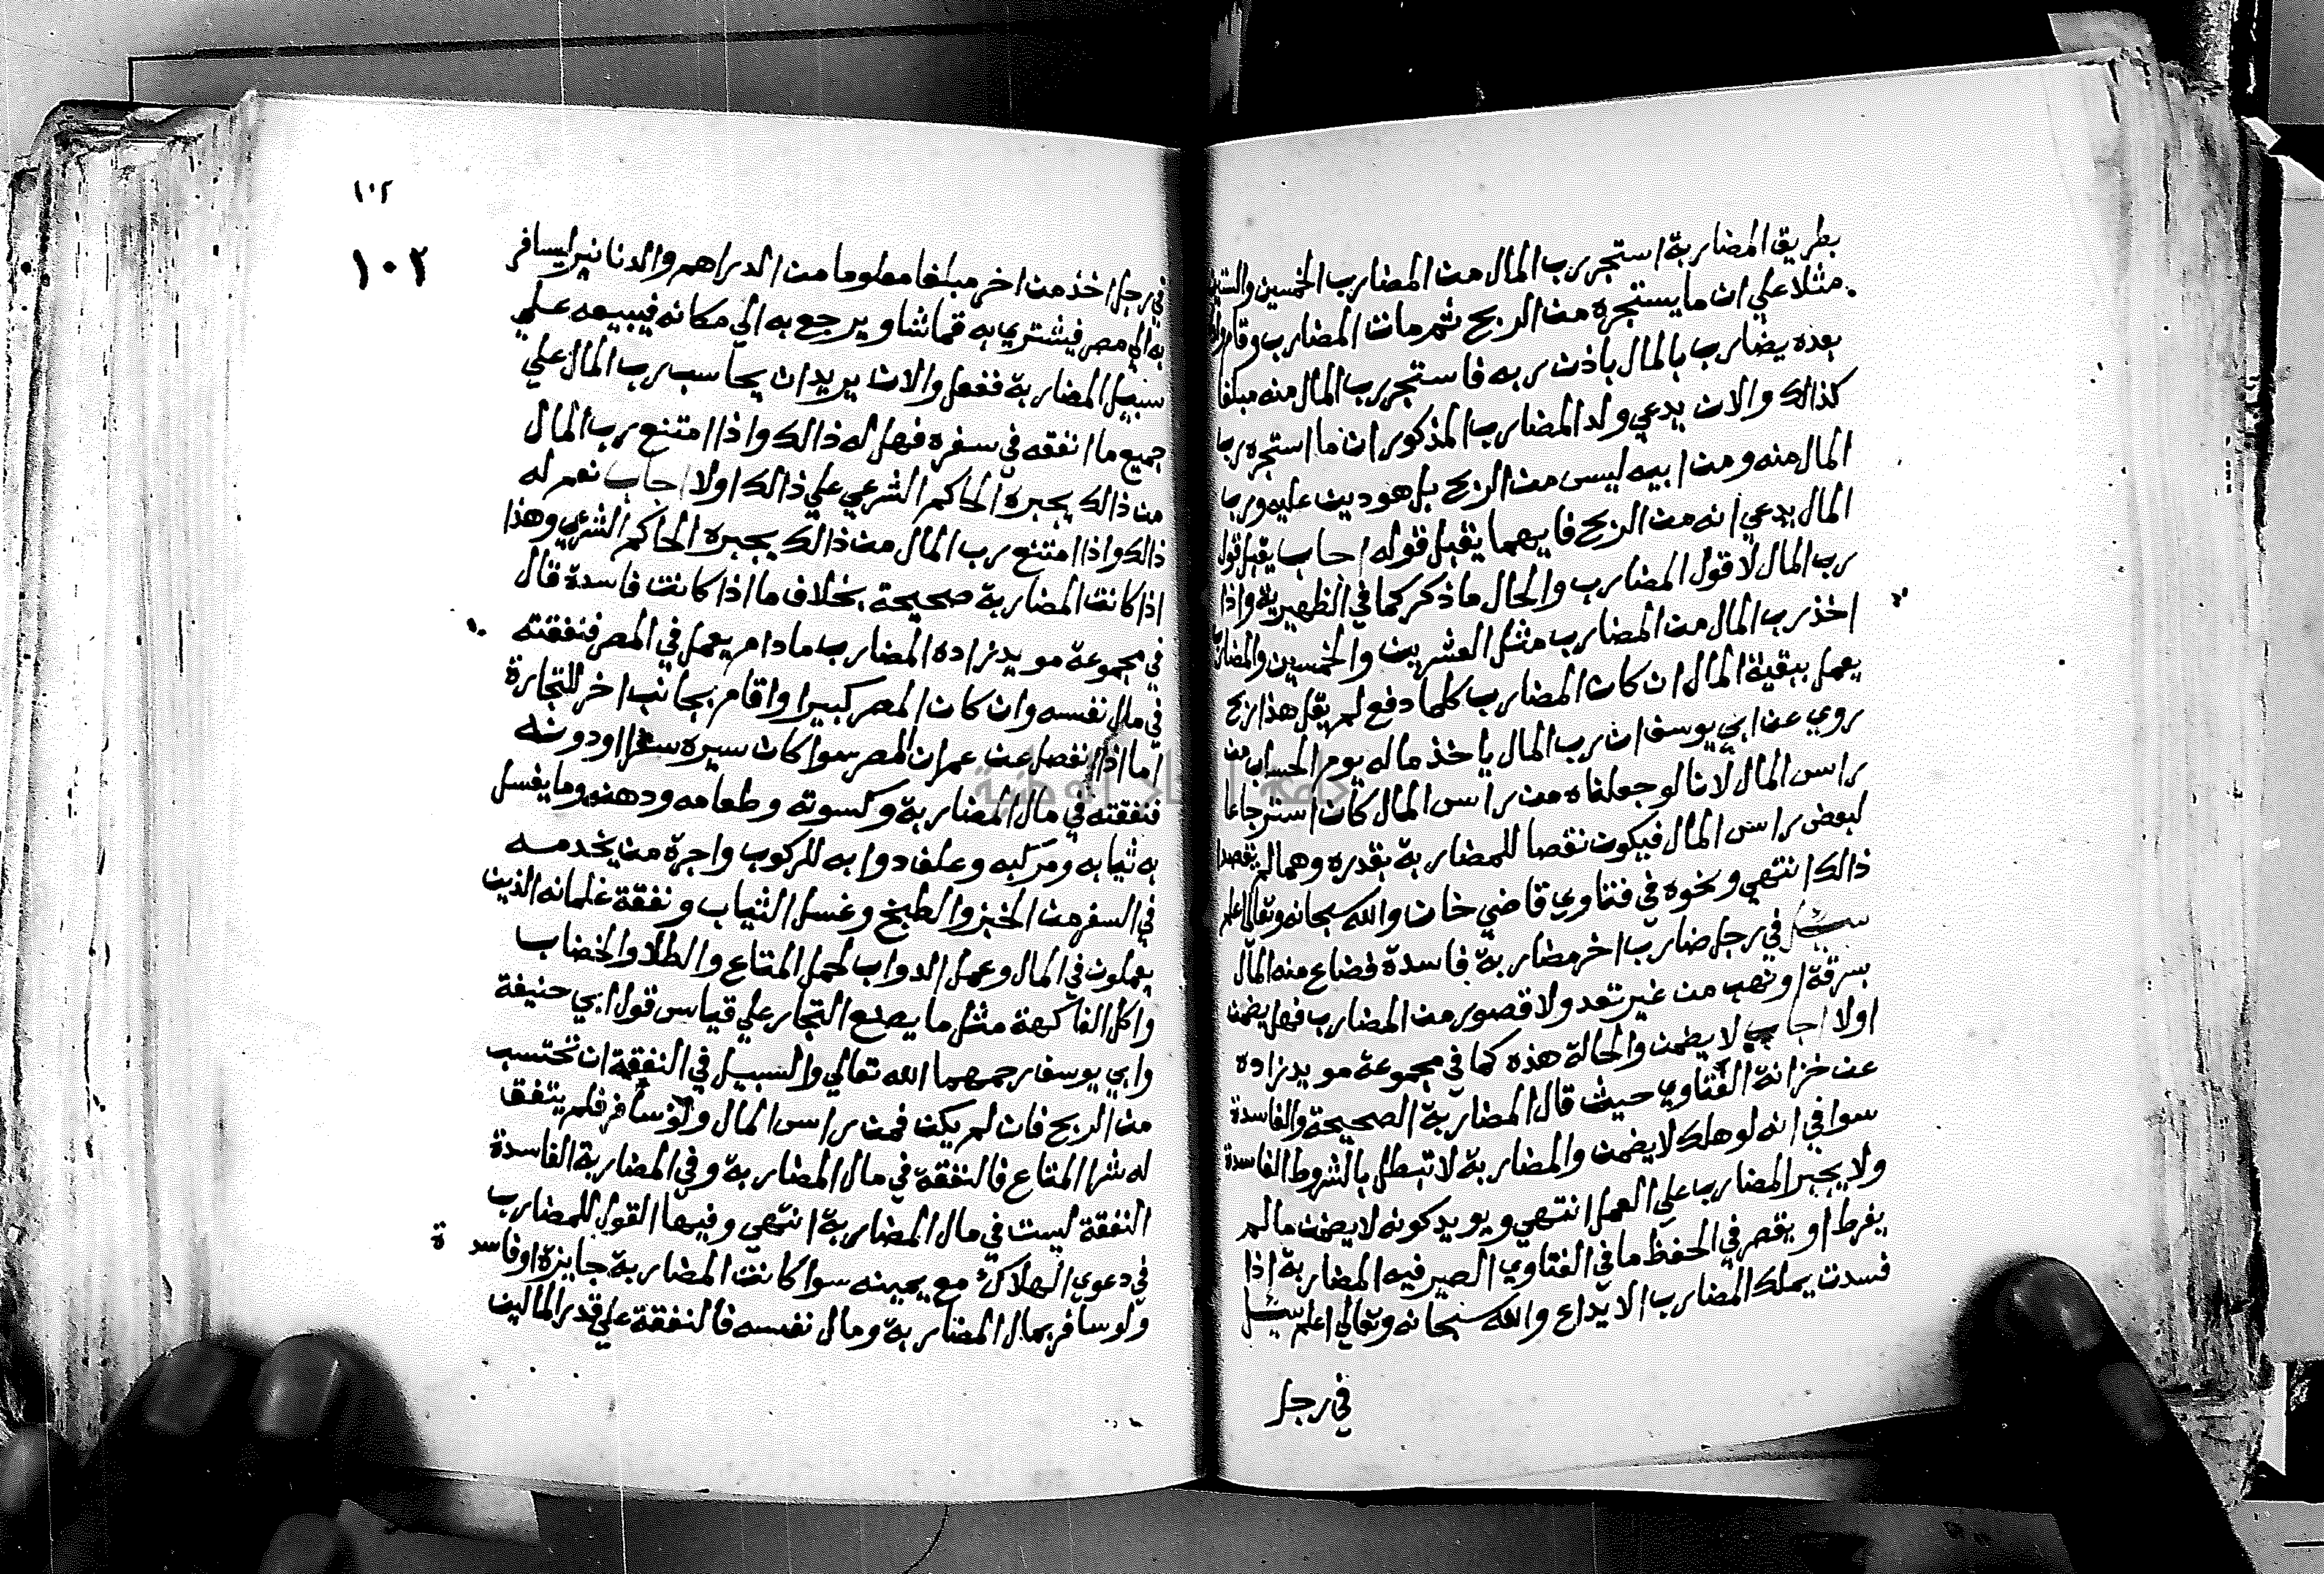 بطريق المضاربة استجر رب المال من المضارب الخمسين والستين
مثلا علي ان ما يستجره من الربح ثم مات المضارب وقام ولده
بعده يضارب بالمال باذن ربه فاستجر رب المال منه مبلغا
كذالك والان يدعي ولد المضارب المذكور ان ما استجره رب
المال منه ومن ابيه ليس من الربح بل هو دين عليه ورب
المال يدعي انه من الربح فايهما يقبل قوله اجاب يقبل قول
رب المال لا قول المضارب والحال ما ذكر كما في الظهيرية واذا
اخذ رب المال من المضارب مثل العشرين والخمسين والمضارب
يعمل ببقية المال ان كان المضارب كلما دفع لم يقل هذا ربح
روي عن ابي يوسف ان رب المال ياخذ ماله يوم الحساب من
راس المال لانا لو جعلناه من راس المال كان استرجاعا
لبعض راس المال فيكون نقصا للمضاربة بقدره وهما لم يقصدا
ذالك انتهي ونحوه في فتاوي قاضي خان والله سبحانه وتعالي اعلم
سئل في رجل ضارب اخر مضاربة فاسدة فضاع منه المال
بسرقة او نهب من غير تعد ولا قصور من المضارب فهل يضمن
اولا اجاب لا يضمن والحالة هذه كما في مجموعة مويد زاده
عن خزانة الفتاوي حيث قال المضاربة الصحيحة والفاسدة
سوا في انه لو هلك لا يضمن والمضاربة لا تبطل بالشروط الفاسدة
ولا يجبر المضارب علي العمل انتهي ويويد كونه لا يضمن مالم
يفرط او يقصر في الحفظ ما في الفتاوي الصيرفيه المضاربة اذا
فسدت يملك المضارب الايداع والله سبحانه وتعالي اعلم سئل
في رجل
١٠٢
١٠٢
في رجل اخذ من اخر مبلغا معلوما من الدراهم والدنانير ليسافر
به الي مصر فيشتري به قماشا ويرجع به الي مكانه فيبيعه علي
سبيل المضاربة ففعل والان يريد ان يحاسب رب المال علي
جميع ما انفقه في سفره فهل له ذالك واذا امتنع رب المال
من ذالك يجبره الحاكم الشرعي علي ذالك اولا اجاب نعم له
ذالك واذا امتنع رب المال من ذالك يجبره الحاكم الشرعي وهذا
اذا كانت المضاربة صحيحة بخلاف ما اذا كانت فاسدة قال
في مجموعة مويد زاده المضارب مادام يعمل في المصر فنفقته
في مال نفسه وان كان المصر كبيرا واقام بجانب اخر للتجارة
اما اذا انفصل عن عمران المصر سوا كان سيره سفرا او دونه
فنفقته في مال المضاربة وكسوته وطعامه ودهنه وما يغسل
به ثيابه ومركبه وعلف دوابه للركوب واجرة من يخدمه
في السفر من الخبز والطبخ وغسل الثياب ونفقة غلمانه الذين
يعملون في المال وعمل الدواب لحمل المتاع والطلا والخضاب
واكل الفاكهة مثل ما يصنع التجار علي قياس قول ابي حنيفة
وابي يوسف رحمهما الله تعالي والسبيل في النفقة ان تحتسب
من الربح فان لم يكن فمن راس المال ولو سافر فلم يتفق
له شرا المتاع فالنفقة في مال المضاربة وفي المضاربة الفاسدة
النفقة ليست في مال المضاربة انتهي وفيها القول للمضارب
في دعوي الهلاك مع يمينه سوا كانت المضاربة جايزة او فاسدة
ولو سافر بمال المضاربة ومال نفسه فالنفقة علي قدر المالين